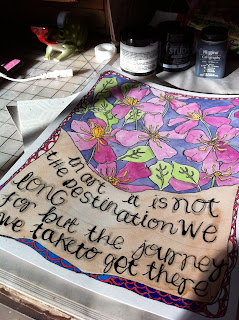 in art it is not
the Destination we
long
for but the journey
we take to get there
Higgins